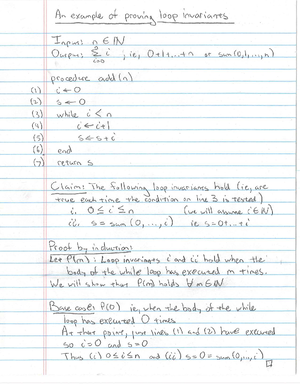 An example of proving loop invariants
Input: n ∈ ℕ
Output: Σ i ; ie, 0+1+...+n or sum(0,1,...,n)
procedure add(n)
(1) i ← 0
(2) s ← 0
(3) while i < n
(4) i ← i+1
(5) s ← s+i
(6) end
(7) return s
Claim: The following loop invariants hold (ie, are
true each time the condition on line 3 is tested)
i. 0 ≤ i ≤ n (we will assume i ∈ ℕ)
ii. s = sum(0,...,i) ie s=0+...+i
Proof by induction:
Let P(m): Loop invariants i and ii hold when the
body of the while loop has executed m times.
We will show that P(m) holds ∀ m ∈ ℕ
Base case: P(0) ie, when the body of the while
loop has executed 0 times
At that point, just lines (1) and (2) have executed
so i=0 and s=0
Thus (i) 0≤i≤n and (ii) s=0=sum(0,...,i)